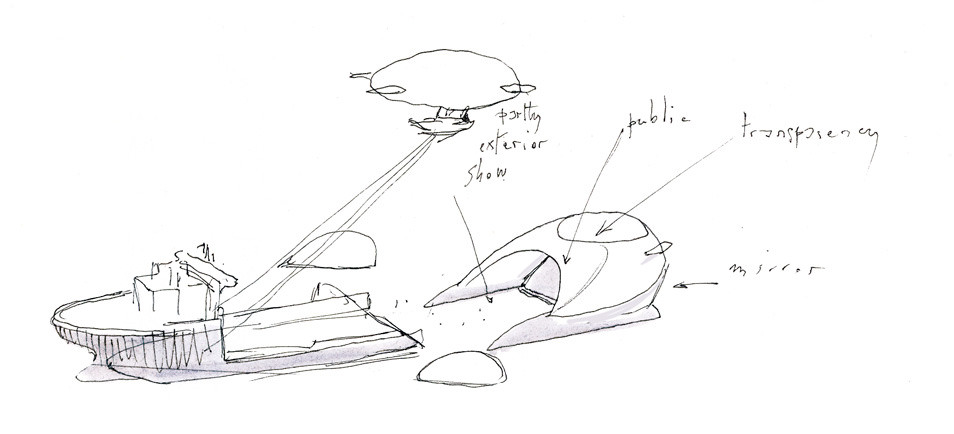 partly
exterior
show
public
transparency
mirror